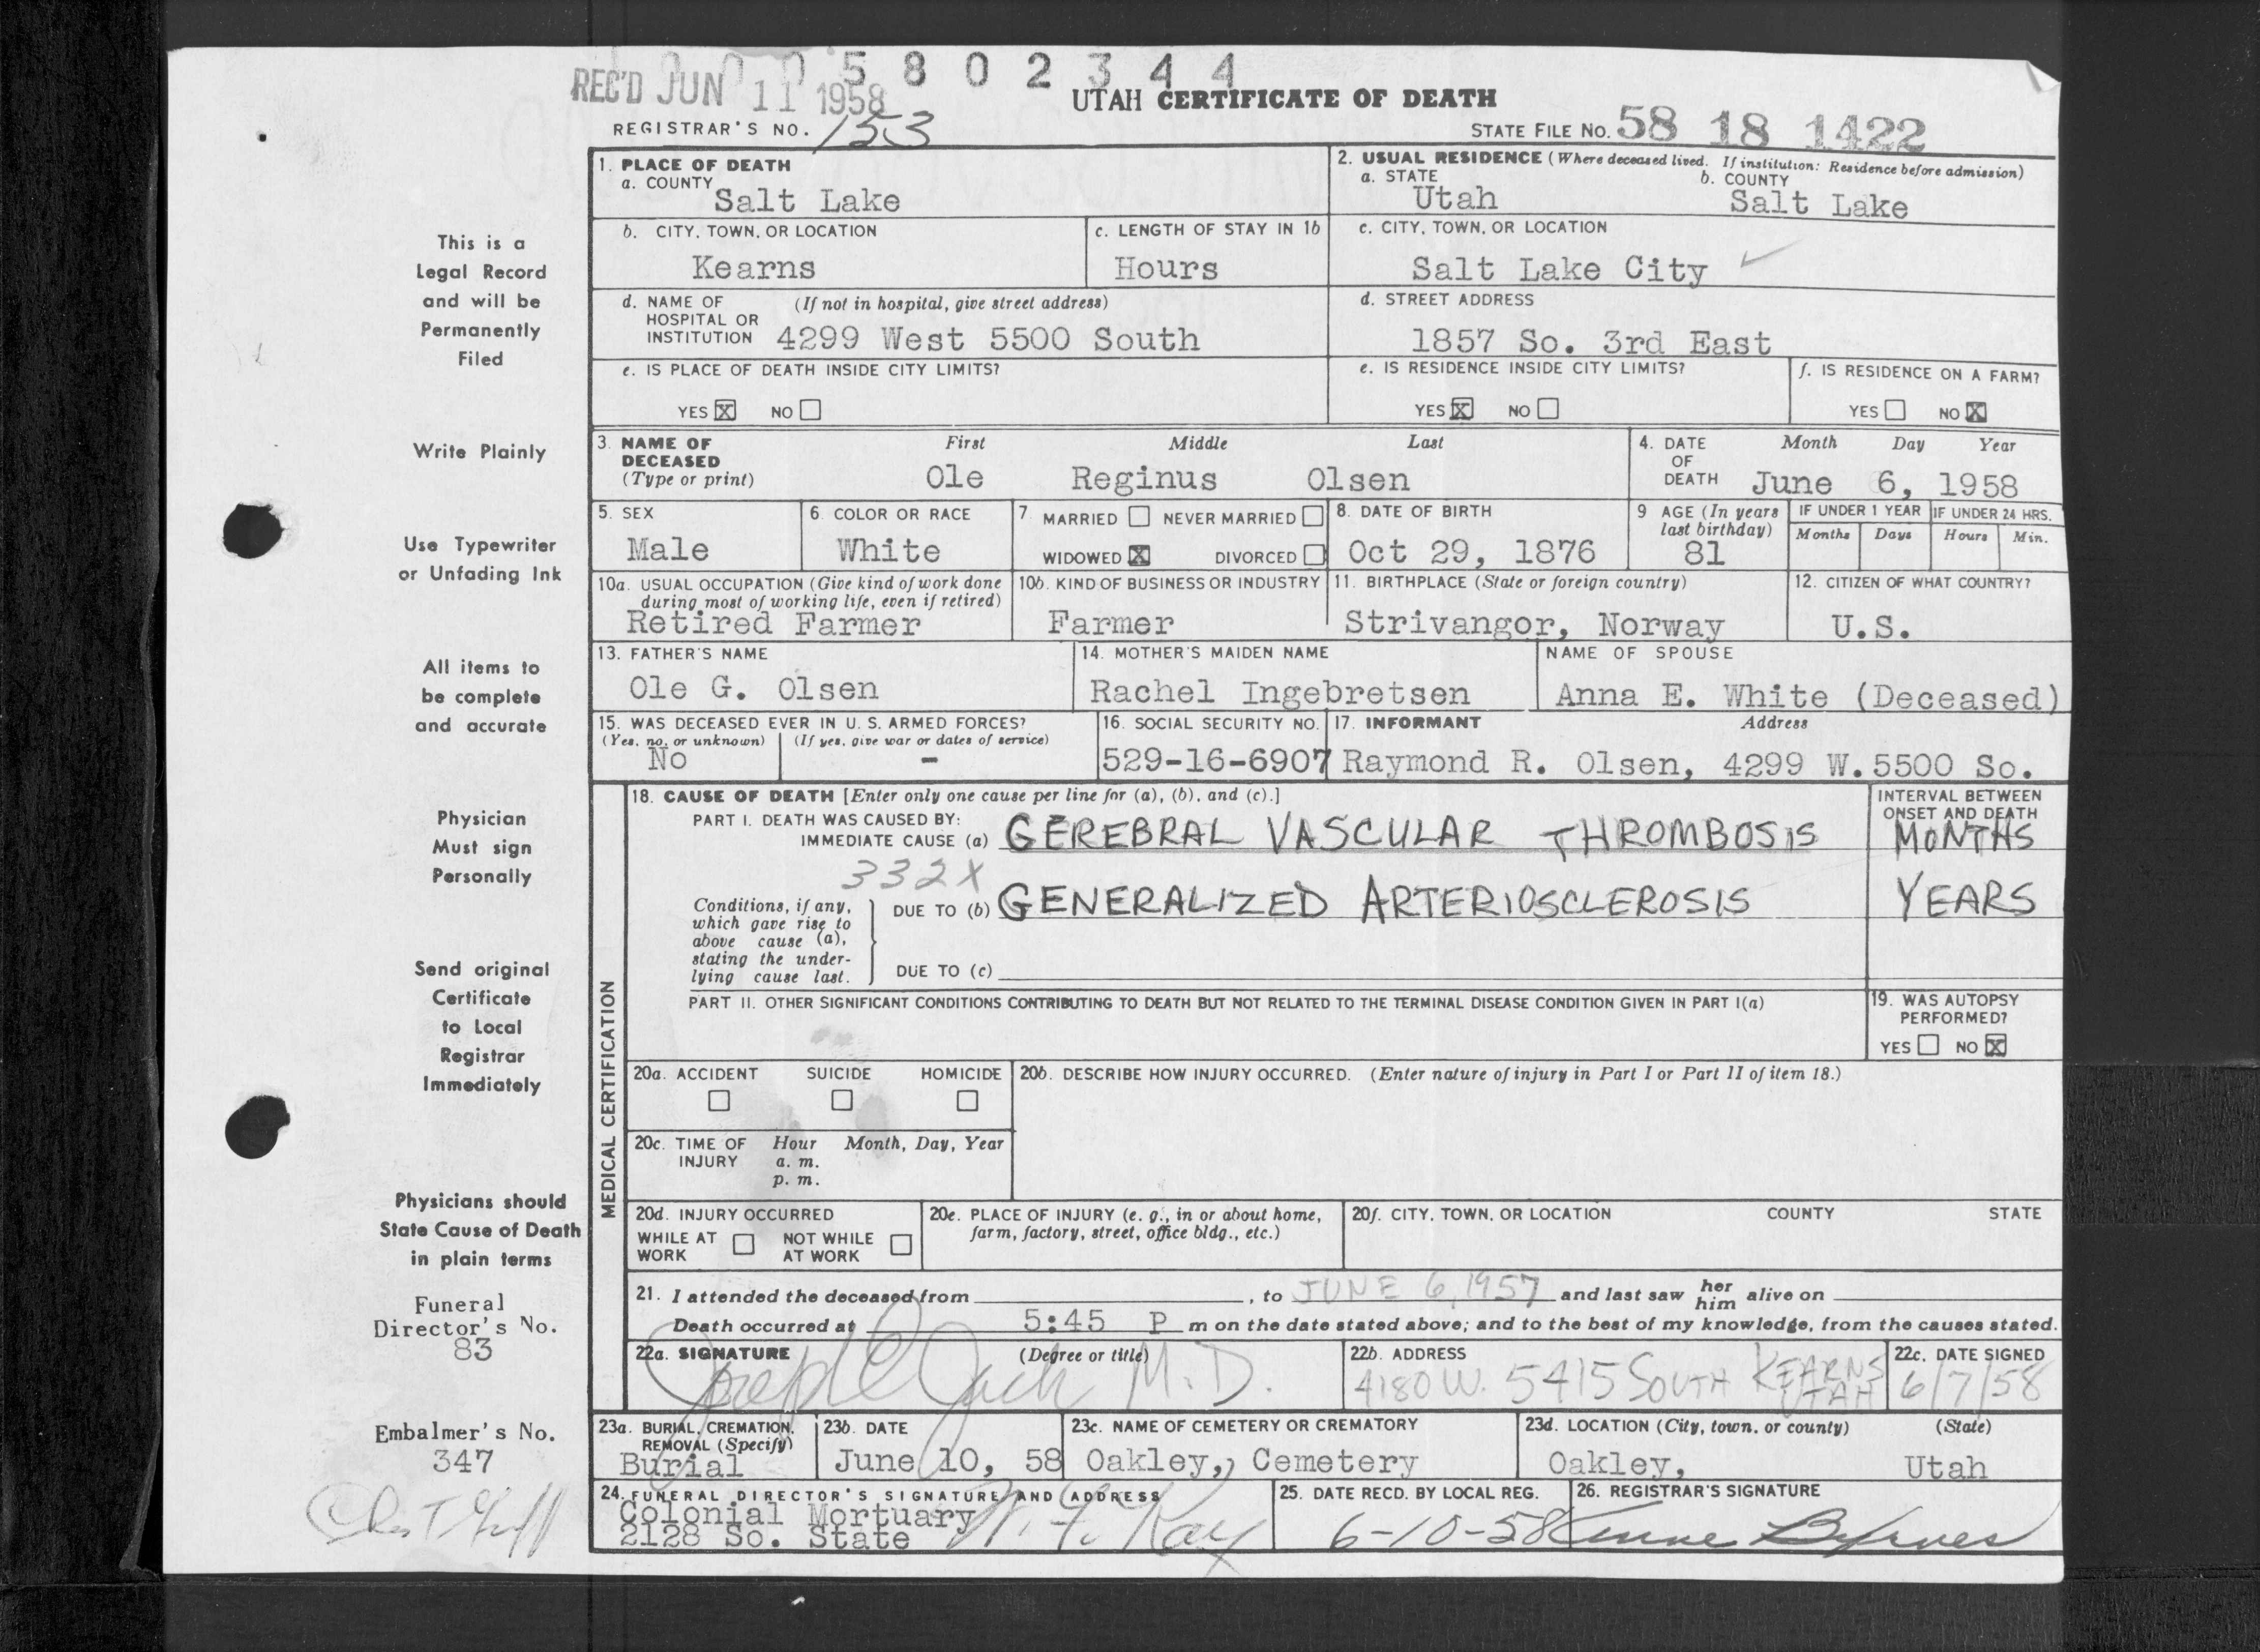 0 0 0 5 8 0 2 3 4 4
REC'D JUN 11 1958
UTAH CERTIFICATE OF DEATH
REGISTRAR'S NO. 153
STATE FILE No. 58 18 1422
This is a
Legal Record
and will be
Permanently
Filed
Write Plainly
Use Typewriter
or Unfading Ink
All items to
be complete
and accurate
Physician
Must sign
Personally
Send original
Certificate
to Local
Registrar
Immediately
Physicians should
State Cause of Death
in plain terms
Funeral
Director's No.
83
Embalmer's No.
347
1. PLACE OF DEATH
a. COUNTY
Salt Lake
2. USUAL RESIDENCE (Where deceased lived. If institution: Residence before admission)
a. STATE b. COUNTY
Utah Salt Lake
b. CITY, TOWN, OR LOCATION
Kearns
c. LENGTH OF STAY IN 1b
Hours
c. CITY, TOWN, OR LOCATION
Salt Lake City
d. NAME OF (If not in hospital, give street address)
HOSPITAL OR
INSTITUTION 4299 West 5500 South
d. STREET ADDRESS
1857 So. 3rd East
e. IS PLACE OF DEATH INSIDE CITY LIMITS?
YES X NO
e. IS RESIDENCE INSIDE CITY LIMITS?
YES X NO
f. IS RESIDENCE ON A FARM?
YES NO X
3. NAME OF First Middle Last
DECEASED
(Type or print) Ole Reginus Olsen
4. DATE Month Day Year
OF
DEATH June 6, 1958
5. SEX
Male
6. COLOR OR RACE
White
7. MARRIED NEVER MARRIED
WIDOWED X DIVORCED
8. DATE OF BIRTH
Oct 29, 1876
9 AGE (In years
last birthday)
81
IF UNDER 1 YEAR
Months Days
IF UNDER 24 HRS.
Hours Min.
10a. USUAL OCCUPATION (Give kind of work done
during most of working life, even if retired)
Retired Farmer
10b. KIND OF BUSINESS OR INDUSTRY
Farmer
11. BIRTHPLACE (State or foreign country)
Strivangor, Norway
12. CITIZEN OF WHAT COUNTRY?
U.S.
13. FATHER'S NAME
Ole G. Olsen
14. MOTHER'S MAIDEN NAME
Rachel Ingebretsen
NAME OF SPOUSE
Anna E. White (Deceased)
15. WAS DECEASED EVER IN U. S. ARMED FORCES?
(Yes, no, or unknown) (If yes, give war or dates of service)
No -
16. SOCIAL SECURITY NO.
529-16-6907
17. INFORMANT Address
Raymond R. Olsen, 4299 W. 5500 So.
MEDICAL CERTIFICATION
18. CAUSE OF DEATH [Enter only one cause per line for (a), (b), and (c).]
INTERVAL BETWEEN
ONSET AND DEATH
PART I. DEATH WAS CAUSED BY:
IMMEDIATE CAUSE (a) CEREBRAL VASCULAR THROMBOSIS MONTHS
332X
Conditions, if any,
which gave rise to
above cause (a),
stating the under-
lying cause last.
DUE TO (b) GENERALIZED ARTERIOSCLEROSIS YEARS
DUE TO (c)
PART II. OTHER SIGNIFICANT CONDITIONS CONTRIBUTING TO DEATH BUT NOT RELATED TO THE TERMINAL DISEASE CONDITION GIVEN IN PART I(a)
19. WAS AUTOPSY
PERFORMED?
YES NO X
20a. ACCIDENT SUICIDE HOMICIDE
20b. DESCRIBE HOW INJURY OCCURRED. (Enter nature of injury in Part I or Part II of item 18.)
20c. TIME OF Hour Month, Day, Year
INJURY a. m.
p. m.
20d. INJURY OCCURRED
WHILE AT NOT WHILE
WORK AT WORK
20e. PLACE OF INJURY (e. g., in or about home,
farm, factory, street, office bldg., etc.)
20f. CITY, TOWN, OR LOCATION COUNTY STATE
21. I attended the deceased from , to JUNE 6, 1957 and last saw her him alive on
Death occurred at 5:45 P m on the date stated above; and to the best of my knowledge, from the causes stated.
22a. SIGNATURE (Degree or title)
Joseph C Jack M.D.
22b. ADDRESS
4180 W. 5415 SOUTH KEARNS
UTAH
22c. DATE SIGNED
6/7/58
23a. BURIAL, CREMATION,
REMOVAL (Specify)
Burial
23b. DATE
June 10, 58
23c. NAME OF CEMETERY OR CREMATORY
Oakley, Cemetery
23d. LOCATION (City, town, or county) (State)
Oakley, Utah
24. FUNERAL DIRECTOR'S SIGNATURE AND ADDRESS
Colonial Mortuary
2128 So. State
25. DATE RECD. BY LOCAL REG.
6-10-58
26. REGISTRAR'S SIGNATURE